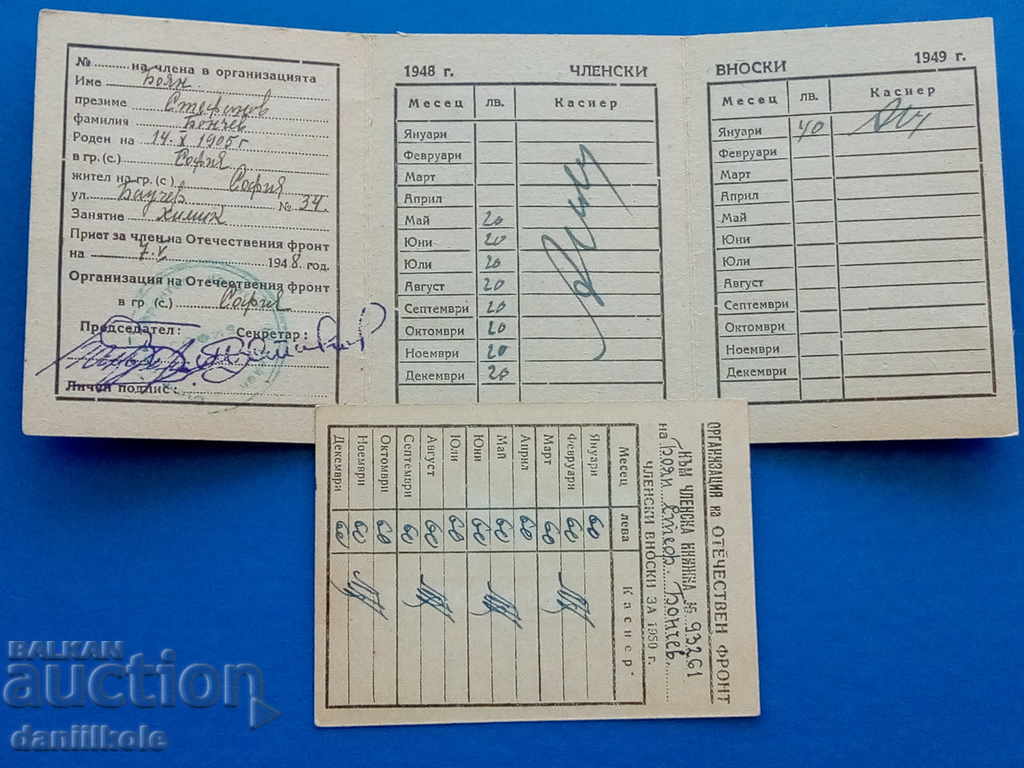 № на члена в организацията
Име Боян
презиме Стефанов
фамилия Бончев
Роден на 14. X 1905 г
в гр. (с.) София
жител на гр. (с) София
ул. № 34.
Занятие химик
Приет за член на Отечествения фронт
на 7. V. 1948. год.
Организация на Отечествения фронт
в гр (с.) София
Председател: Секретар:
Личен подпис:
1948 г. ЧЛЕНСКИ
Месец лв. Касиер
Януари
Февруари
Март
Април
Май 20
Юни 20
Юли 20
Август 20
Септември 20
Октомври 20
Ноември 20
Декември 20
ВНОСКИ 1949 г.
Месец лв. Касиер
Януари 40
Февруари
Март
Април
Май
Юни
Юли
Август
Септември
Октомври
Ноември
Декември
ОРГАНИЗАЦИЯ на ОТЕЧЕСТВЕН ФРОНТ
КЪМ ЧЛЕНСКА КНИЖКА № 93261
на Боян Стеф. Бончев
ЧЛЕНСКИ ВНОСКИ ЗА 1950 г.
Месец лева Касиер
Януари 60
Февруари 60
Март 60
Април 60
Май 60
Юни 60
Юли 60
Август 60
Септември 60
Октомври 60
Ноември 60
Декември 60
BALKAN
auction
daniilkole